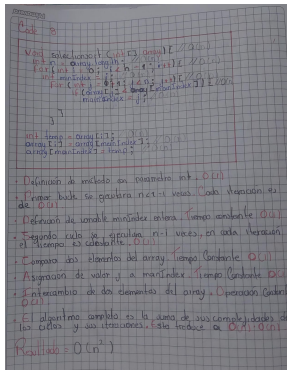 Code 3
void selectionSort (int[] array) { // O(1)
int n = array.length;
for (int i = 0; i < n - 1; i++) {
int minIndex = i;
for (int j = i + 1; j < n; j++) {
if (array[j] < array[minIndex]) {
minIndex = j;
}
}
int temp = array[i];
array[i] = array[minIndex];
array[minIndex] = temp;
}
· Definición de método con parámetro int. O(1)
· Primer bucle se ejecutara n-1 veces. Cada iteración es de O(1)
· Definición de variable minIndex entera. Tiempo constante O(1)
· Segundo ciclo se ejecutara n-1 veces, en cada iteración el tiempo es constante O(1)
· Compara dos elementos del array. Tiempo Constante O(1)
· Asignación de valor j a minIndex. Tiempo Constante O(1)
· Intercambio de dos elementos del array. Operación Constante O(1)
· El algoritmo completo es la suma de sus complejidades de los ciclos y sus iteraciones. Esto traduce a O(n) · O(n)
Resultado = O(n²)